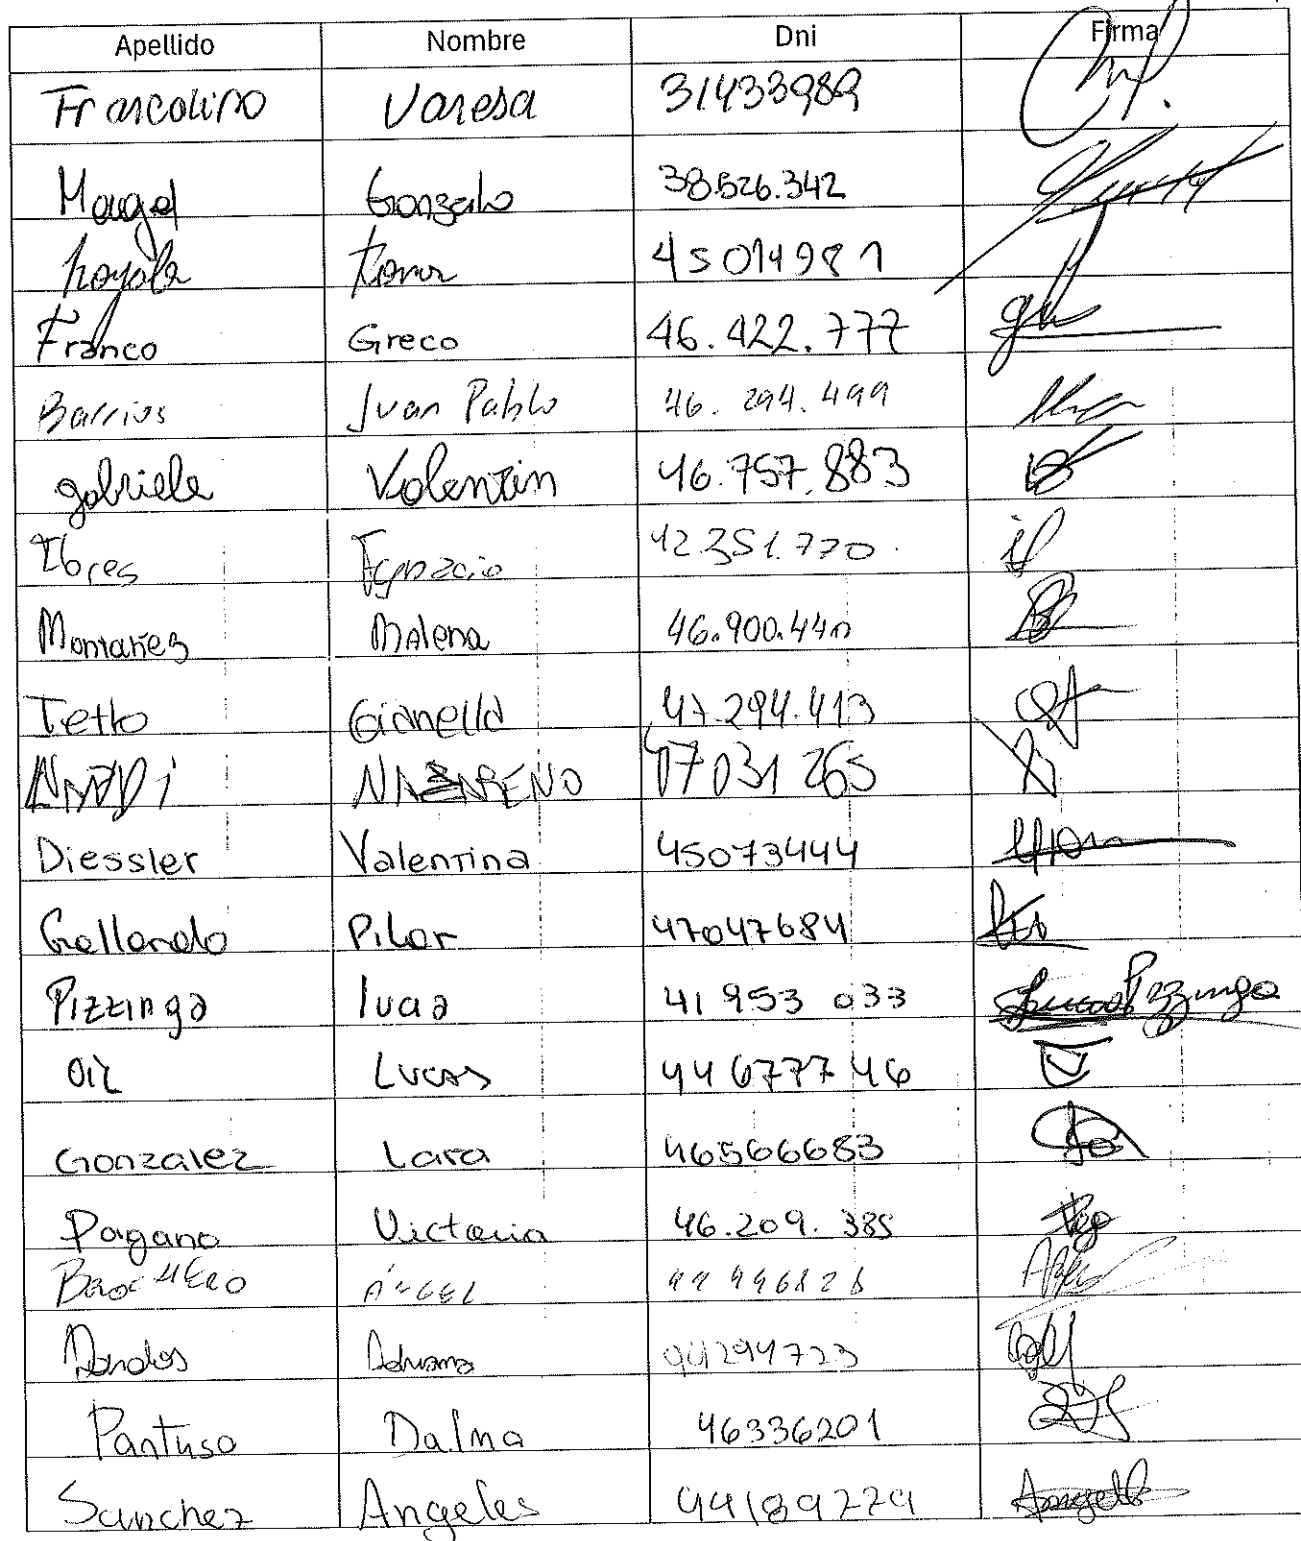 Apellido Nombre Dni Firma
Francolino Vanesa 31433989
Mougel Gonzalo 38.526.342
Loyola 45014981
Franco Greco 46.422.777
Barrios Juan Pablo 46.294.499
gabriele Valentin 46.757.883
Flores Ignacio 42.351.770
Montañez Malena 46.900.440
Tetto Gianella 47.294.413
NAZARENO 47031265
Diessler Valentina 45073444
Gallardo Pilar 47047684
Pizzinga luca 41 953 033 Lucas Pizzinga
Oil Lucas 44677746
Gonzalez Lara 46566683
Pagano Victoria 46.209.385
ÁNGEL
Adriana 94294723
Pantuso Dalma 46336201
Sanchez Angeles 44189279